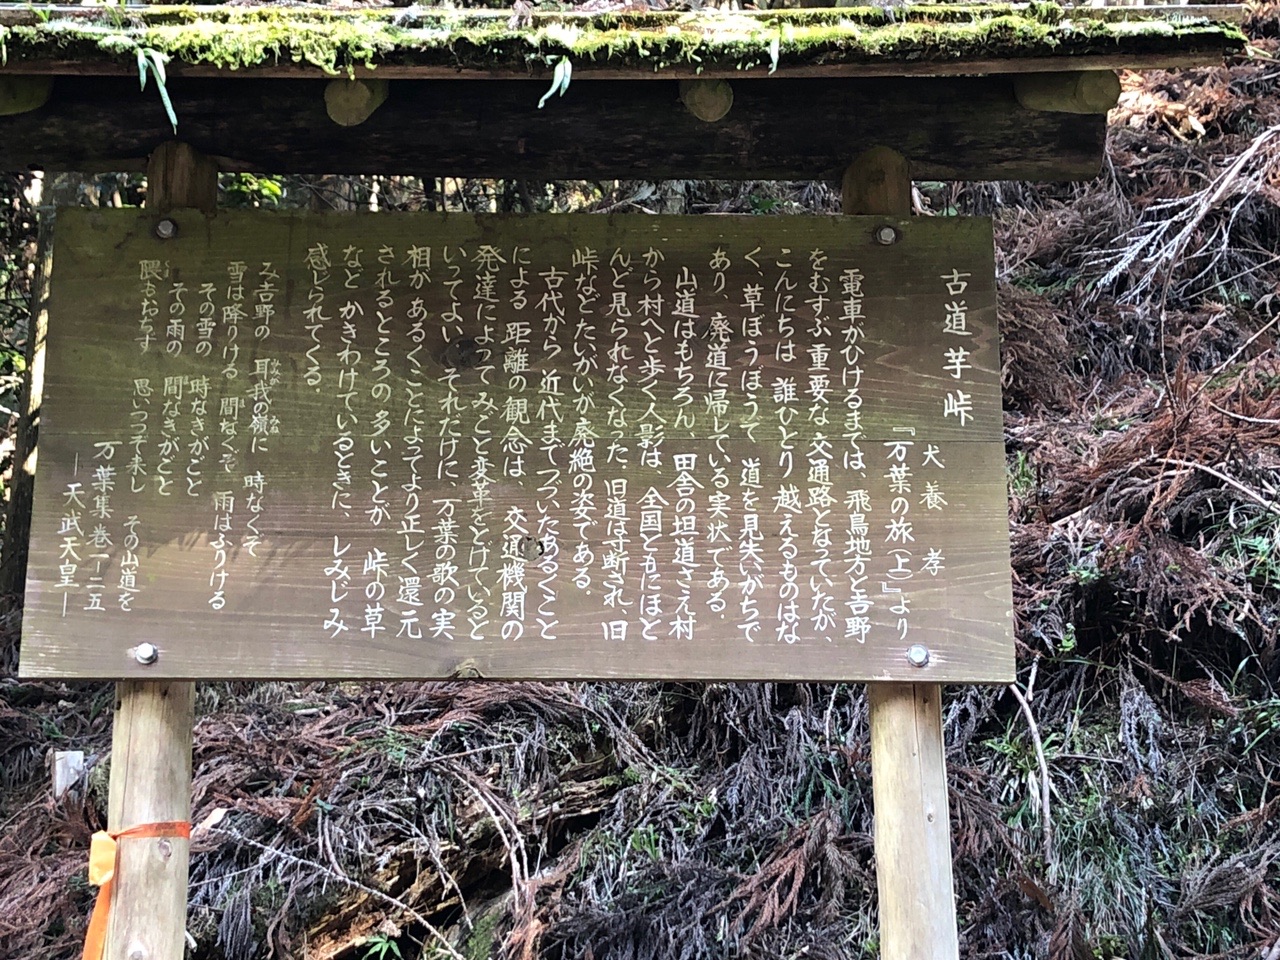 古道芋峠
犬養 孝
『万葉の旅(上)』より
電車がひけるまでは、飛鳥地方と吉野
をむすぶ重要な交通路となっていたが、
こんにちは 誰ひとり 越えるものはな
く、草ぼうぼうで 道を見失いがちで
あり、廃道に帰している実状である。
山道はもちろん、田舎の坦道さえ村
から村へと歩く人影は、全国ともにほと
んど見られなくなった。旧道は寸断され、旧
峠などたいがいが廃絶の姿である。
古代から 近代までつづいたあるくこと
による 距離の観念は、交通機関の
発達によってみごと変革をとげていると
いってよい。それだけに、万葉の歌の実
相が あるくことによってより正しく還元
されるところの多いことが 峠の草
など かきわけているときに、しみじみ
感じられてくる。
み吉野の 耳我の嶺に 時なくぞ
雪は降りける 間なくぞ 雨はふりける
その雪の 時なきがごと
その雨の 間なきがごと
隈もおちず 思ひつつぞ来し その山道を
万葉集 巻一―二五
―天武天皇―